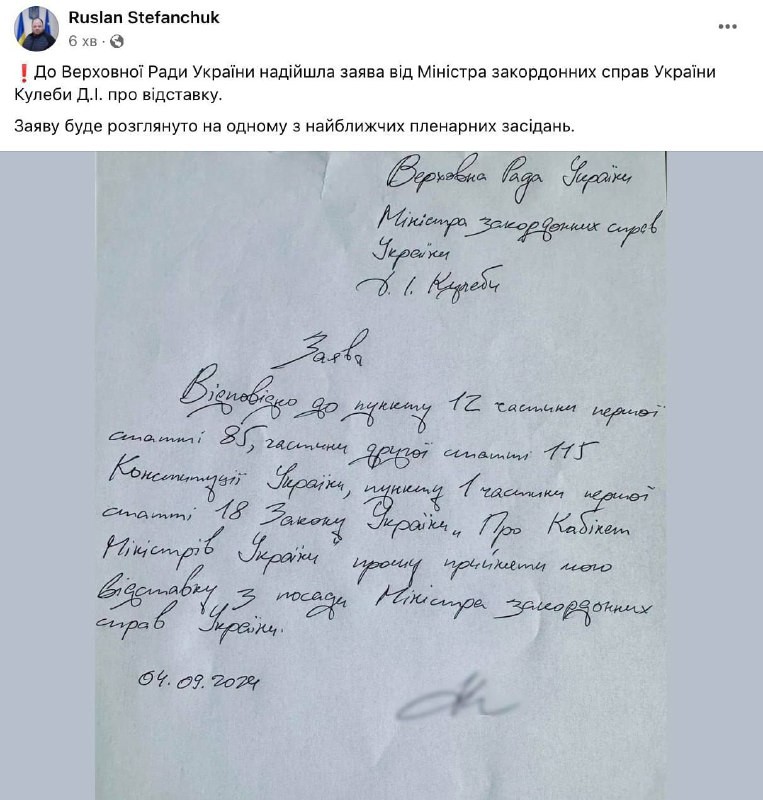 Ruslan Stefanchuk
6 хв ·
❗До Верховної Ради України надійшла заява від Міністра закордонних справ України
Кулеби Д.І. про відставку.
Заяву буде розглянуто на одному з найближчих пленарних засідань.
Верховна Рада України
Міністра закордонних справ
України
Д. І. Кулеби
Заява
Відповідно до пункту 12 частини першої
статті 85, частини другої статті 115
Конституції України, пункту 1 частини першої
статті 18 Закону України „Про Кабінет
Міністрів України" прошу прийняти мою
відставку з посади Міністра закордонних
справ України.
04.09.2024